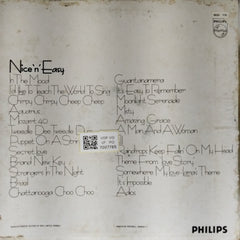 Nice 'n' Easy
In The Mood
I'd Like To Teach The World To Sing
Chirpy Chirpy Cheep Cheep
Aquarius
Mozart 40
Tweedle Dee Tweedle Dum
Puppet On A String
Secret Love
Brand New Key
Strangers In The Night
Bread
Chattanooga Choo Choo
Guantanamera
It's Easy To Remember
Moonlight Serenade
Misty
Amazing Grace
A Man And A Woman
Raindrops Keep Fallin On My Head
Theme From Love Story
Somewhere My Love Lara's Theme
It's Impossible
Adios
PHILIPS